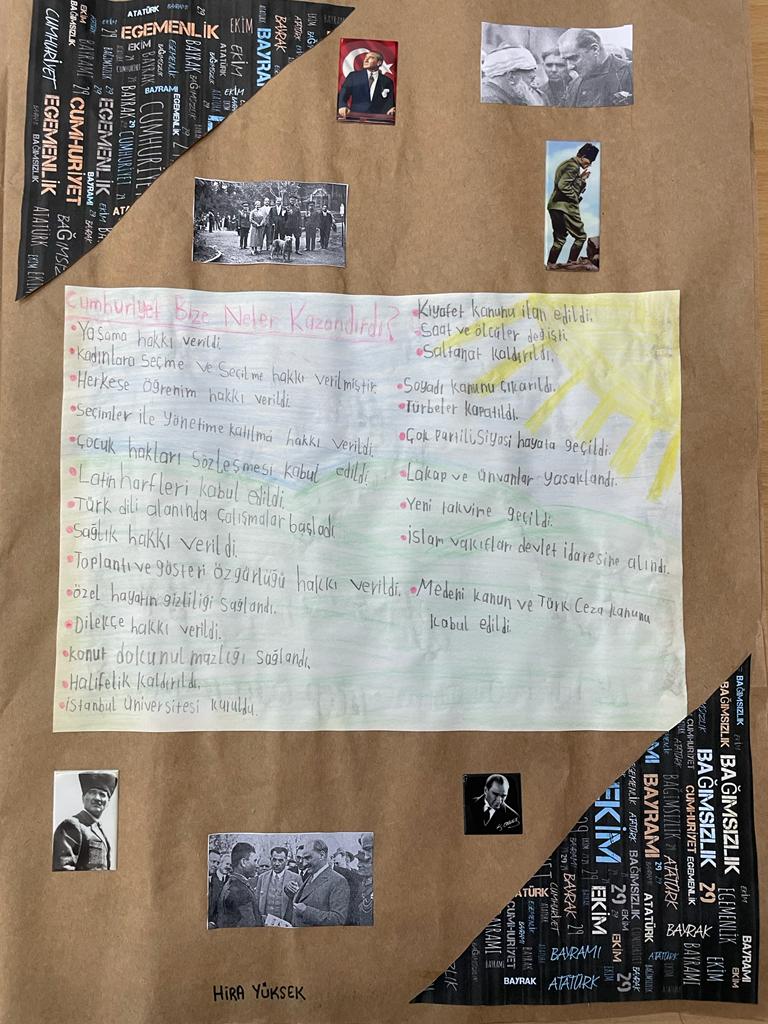 Cumhuriyet Bize Neler Kazandırdı?
Yaşama hakkı verildi.
Kadınlara Seçme ve Seçilme hakkı verilmiştir.
Herkese öğrenim hakkı verildi.
Seçimler ile yönetime katılma hakkı verildi.
Çocuk hakları Sözleşmesi kabul edildi.
Latin harfleri kabul edildi.
Türk dili alanında çalışmalar başladı.
Sağlık hakkı verildi.
Toplantı ve gösteri özgürlüğü hakkı verildi.
özel hayatın gizliliği sağlandı.
Dilekçe hakkı verildi.
konut dokunulmazlığı sağlandı.
Halifelik kaldırıldı.
istanbul üniversitesi kuruldu.
Kıyafet kanunu ilan edildi.
Saat ve ölçüler değişti.
Saltanat kaldırıldı.
Soyadı kanunu çıkarıldı.
Türbeler kapatıldı.
Çok partili Siyasi hayata geçildi.
Lakap ve ünvanlar yasaklandı.
Yeni takvime geçildi.
islam vakıfları devlet idaresine alındı.
Medeni kanun ve Türk Ceza kanunu
kabul edildi.
HiRA YÜKSEK
ATATÜRK
EGEMENLİK
EKİM
BAYRAK
CUMHURİYET
EGEMENLİK
CUMHURİYET
EGEMENLİK
BAĞIMSIZLIK
ATATÜRK
BAĞIMSIZLIK
BAĞIMSIZLIK
BAYRAMI
EKİM
29
EKİM
29
ATATÜRK
EGEMENLİK
BAYRAK
BAYRAMI
ATATÜRK
BAYRAK
EKİM
BAYRAMI